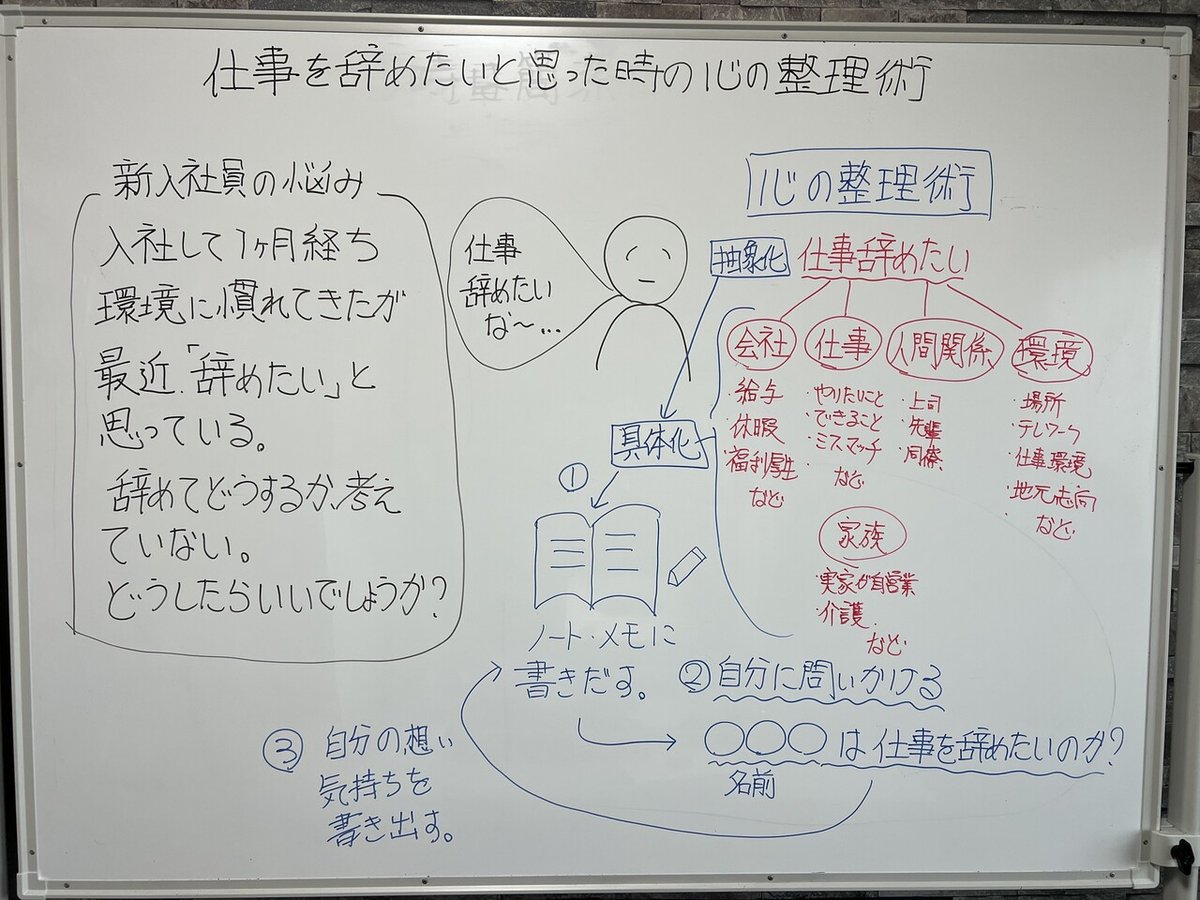 仕事を辞めたいと思った時の心の整理術
新入社員の悩み
入社して1ヶ月経ち
環境に慣れてきたが
最近「辞めたい」と
思っている。
辞めてどうするか、考え
ていない。
どうしたらいいでしょうか?
仕事
辞めたい
な〜…
心の整理術
抽象化
仕事辞めたい
会社
・給与
・休暇
・福利厚生
など
仕事
・やりたいこと
・できること
・ミスマッチ
など
人間関係
・上司
・先輩
・同僚
環境
・場所
・テレワーク
・仕事環境
・地元志向
など
家族
・実家が自営業
・介護
など
具体化
①
ノート・メモに
書きだす。
②自分に問いかける
〇〇〇は仕事を辞めたいのか?
名前
③ 自分の想い
気持ちを
書き出す。